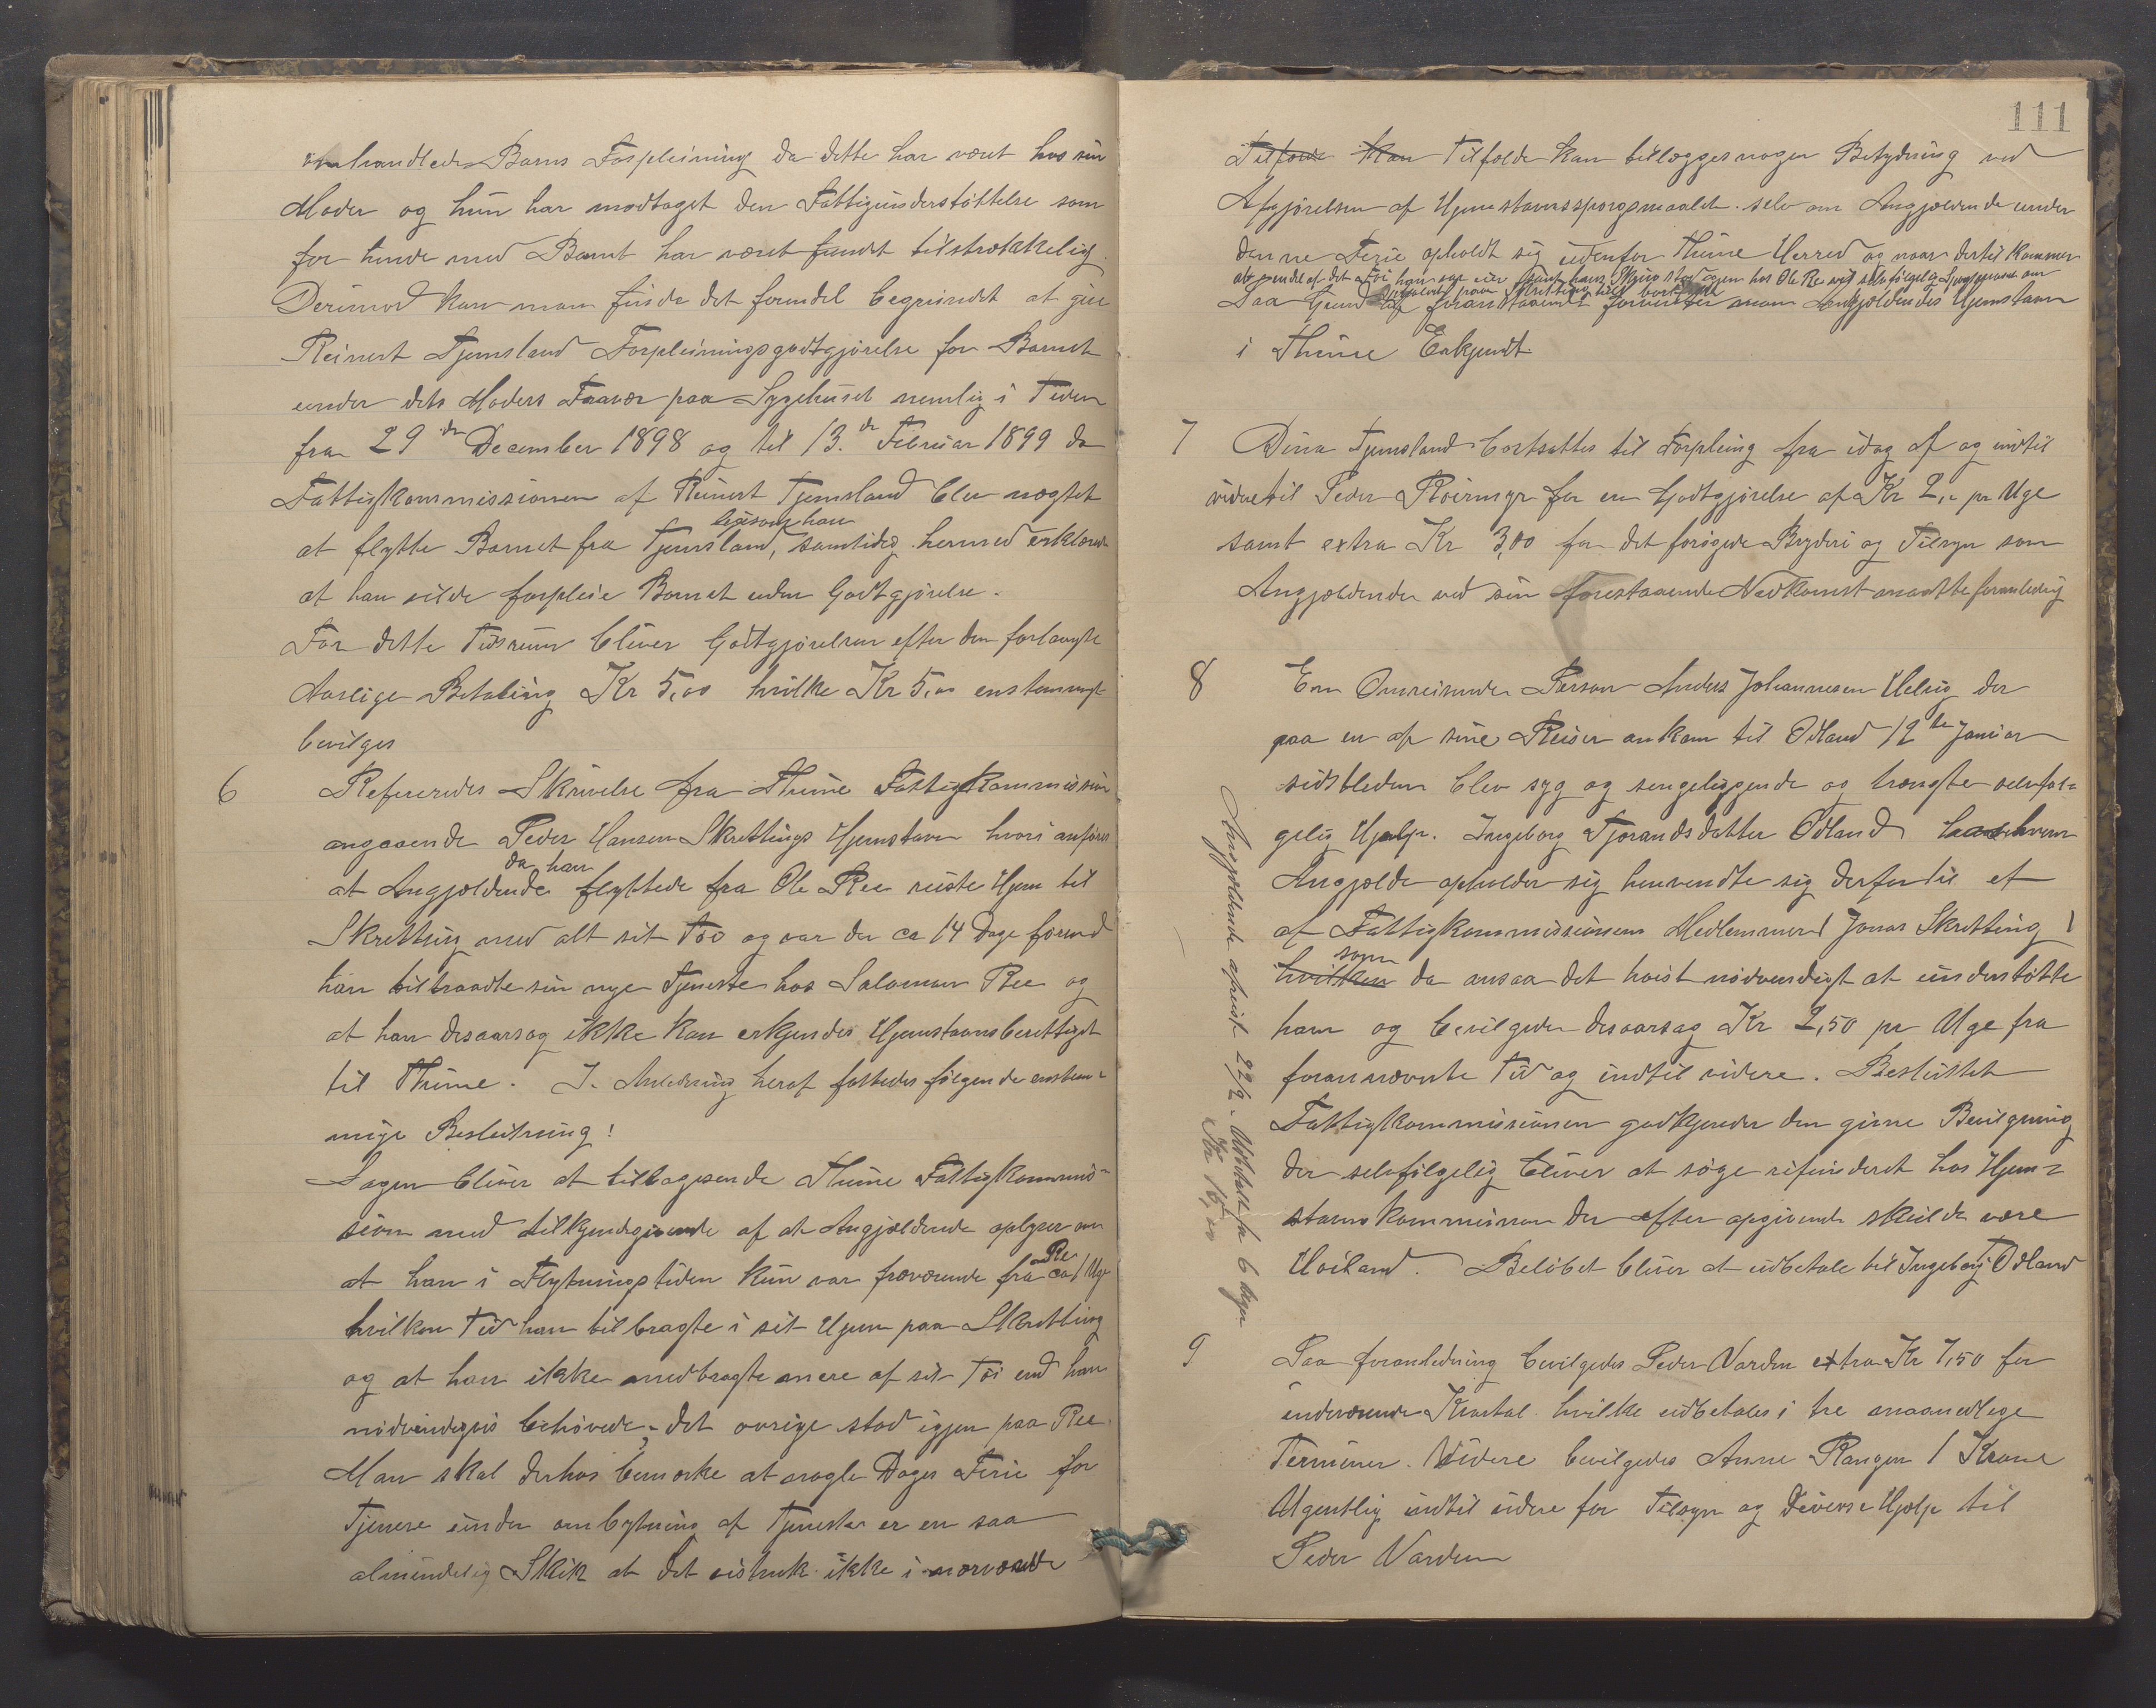 omhandlede Barns Forpleining da dette har været hos sin
Moder og hun har modtaget den Fattigunderstøttelse som
for hende med Barnet har været fundet tilstrækkelig.
Derimod kan man finde det forendel begrundet at give
Reinert Tjemsland Forpleiningsgodtgjørelse for Barnet
under dets Moders Fravær paa Sygehuset nemlig i Tiden
fra 29de December 1898 og til 13.de Februar 1899 da
Fattigkommissionen af Reinert Tjemsland blev nægtet
ligesom han
at flytte Barnet fra Tjemsland, samtidig hermed erklærede
at han vilde forpleie Barnet uden Godtgjørelse.
For dette Tidsrum bliver Godtgjørelsen efter den forlangte
Aarlige Betaling Kr 5,00 hvilke Kr 5,00 enstemmigt
bevilges
6 Refereredes Skrivelse fra Thime Fattigkommission
angaaende Peder Hansen Skrettings Hjemstavn hvori anføres
da han
at Angjældende flyttede fra Ole Ree reiste Hjem til
Skretting med alt sit Tøi og var der ca 14 Dage førend
han tiltraadte sin nye Tjeneste hos Salomon Ree og
at han desaarsag ikke kan erkjendes Hjemstavnsberettiget
til Thime. I Anledning heraf fattedes følgende enstem-
mige Beslutning!
Sagen bliver at tilbagesende Thime Fattigkommis-
sion med tilkjendegivende af at Angjældende oplyser om
Re
at han i Flytningstiden kun var fraværende fra ca 1 Uge
hvilken Tid han tilbragte i sit Hjem paa Skretting
og at han ikke medbragte mere af sit Tøi end han
nødvendigvis behøvede, det øvrige stod igjen paa Ree.
Man skal derhos bemærke at nogle Dages Ferie for
Tjenere under ombytning af Tjeneste er en saa
almindelig Skik at det vistnok ikke i nærværende
111
Tilfælde kan Tilfælde kan tillægges nogen Betydning ved
Afgjørelsen af Hjemstavnsspørgsmaalet selv om Angjældende under
denne Ferie opholdt sig udenfor Thime Herred og naar dertil kommer
at endel af det Tøi han var eier samt hans Skrin stod igjen hos Ole Re vil selvfølgelig Spørgsmaal om
Opholdet paa Skretting helt bortfalde
Paa Grund af foranstaaende formener man Angjældendes Hjemstavn
i Thime Erkjendt.
7 Dina Tjemsland bortsattes til Forpleing fra idag af og indtil
videre til Peder Røirmyr for en Godtgjørelse af Kr 2,- pr Uge
samt extra Kr 3,00 for det forøgede Bryderi og Tilsyn som
Angjældende ved sin forestaaende Nedkomst maatte foranledig
8 Em Omreisende Person Anders Johannesen Helvig der
paa en af sine Reiser ankom til Ødland 12te Januar
sidstleden blev syg og sengeliggende og trængte selvføl-
gelig Hjælp. Ingeborg Tjorandsdatter Ødland hos hvem
Angjælde opholder sig henvendte sig derfor til et
af Fattigkommissionens Medlemmer (Jonas Skretting)
som
hvilken da ansaa det høist nødvendigt at understøtte
ham og bevilgede desaarsag Kr 2,50 pr Uge fra
forannævnte Tid og indtil videre. Besluttet
Fattigkommissionen godkjender den givne Bevilgning
der selvfølgelig bliver at søge refunderet hos Hjem-
stavnskommissionen der efter opgivende skulde være
Høiland. Beløbet bliver at udbetale til Ingeborg T Ødland
Angjældende afreist 22/2. Udbetalt for 6 Uger
Kr 15,00
9 Paa foranledning bevilgedes Peder Varden extra Kr 7,50 for
inderværende Kvartal hvilke udbetales i tre maanedlige
Terminer. Videre bevilgedes Anne Rangen 1 Krone
Ugentlig indtil videre for Tilsyn og Diverse Hjælp til
Peder Varden